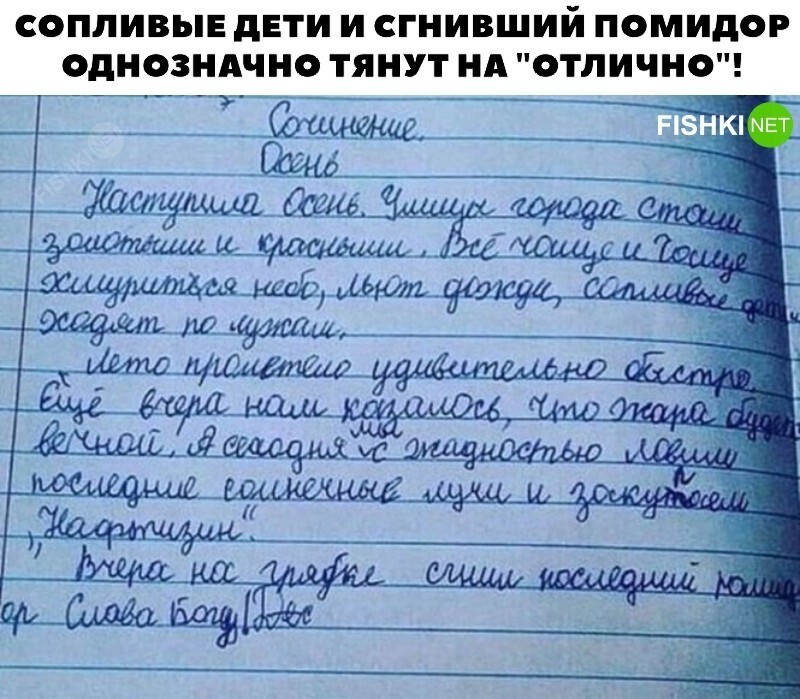 СОПЛИВЫЕ ДЕТИ И СГНИВШИЙ ПОМИДОР
ОДНОЗНАЧНО ТЯНУТ НА "ОТЛИЧНО"!
FISHKI NET
Сочинение.
Осень
Наступила Осень. Улицы города стали
золотыми и красными. Всё чаще и чаще
хмурится небо, льют дожди, сопливые дети
ходят по лужам.
Лето пролетело удивительно быстро.
Ещё вчера нам казалось, что жара будет
вечной. А сегодня мы с жадностью ловим
последние солнечные лучи и закупаем
„Нафтизин“.
Вчера на грядке сгнил последний помид
ор Слава Богу!